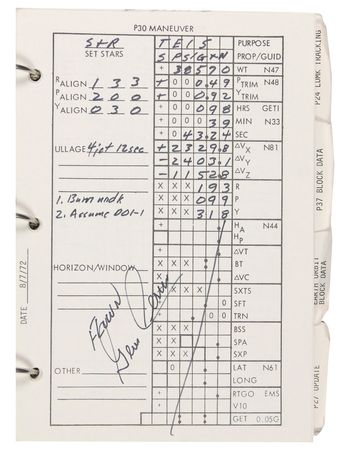 P30 MANEUVER
SET STARS
T E I S PURPOSE
S P S / G + N PROP/GUID
+ 3 8 5 7 0 WT N47
R ALIGN 1 3 3 + 0 0 0.4 9 P TRIM N48
P ALIGN 2 0 0 + 0 0.9 2 Y TRIM
Y ALIGN 0 3 0 + 0 0 0 9 8 HRS GETI
+ 0 0 0 3 9 MIN N33
+ 0 4 3.2 4 SEC
ULLAGE 4 jet 12 sec + 2 3 2 9.8 ΔVX N81
- 2 4 0 3.1 ΔVY
- 1 1 5 2 8 ΔVZ
X X X 1 9 3 R
1. Burn undk X X X 0 9 9 P
2. Assume 001-1 X X X 3 1 8 Y
+ HA N44
HP
+ ΔVT
HORIZON/WINDOW X X X BT
X ΔVC
X X X X SXTS
+ 0 SFT
+ 0 0 TRN
X X X BSS
X X SPA
X X X SXP
OTHER 0 LAT N61
LONG
+ RTGO EMS
+ V10
GET 0.05G
Flown
Gene Cernan
DATE 8/7/72
P24 LDMK TRACKING
P37 BLOCK DATA
EARTH ORBIT
BLOCK DATA
P27 UPDATE